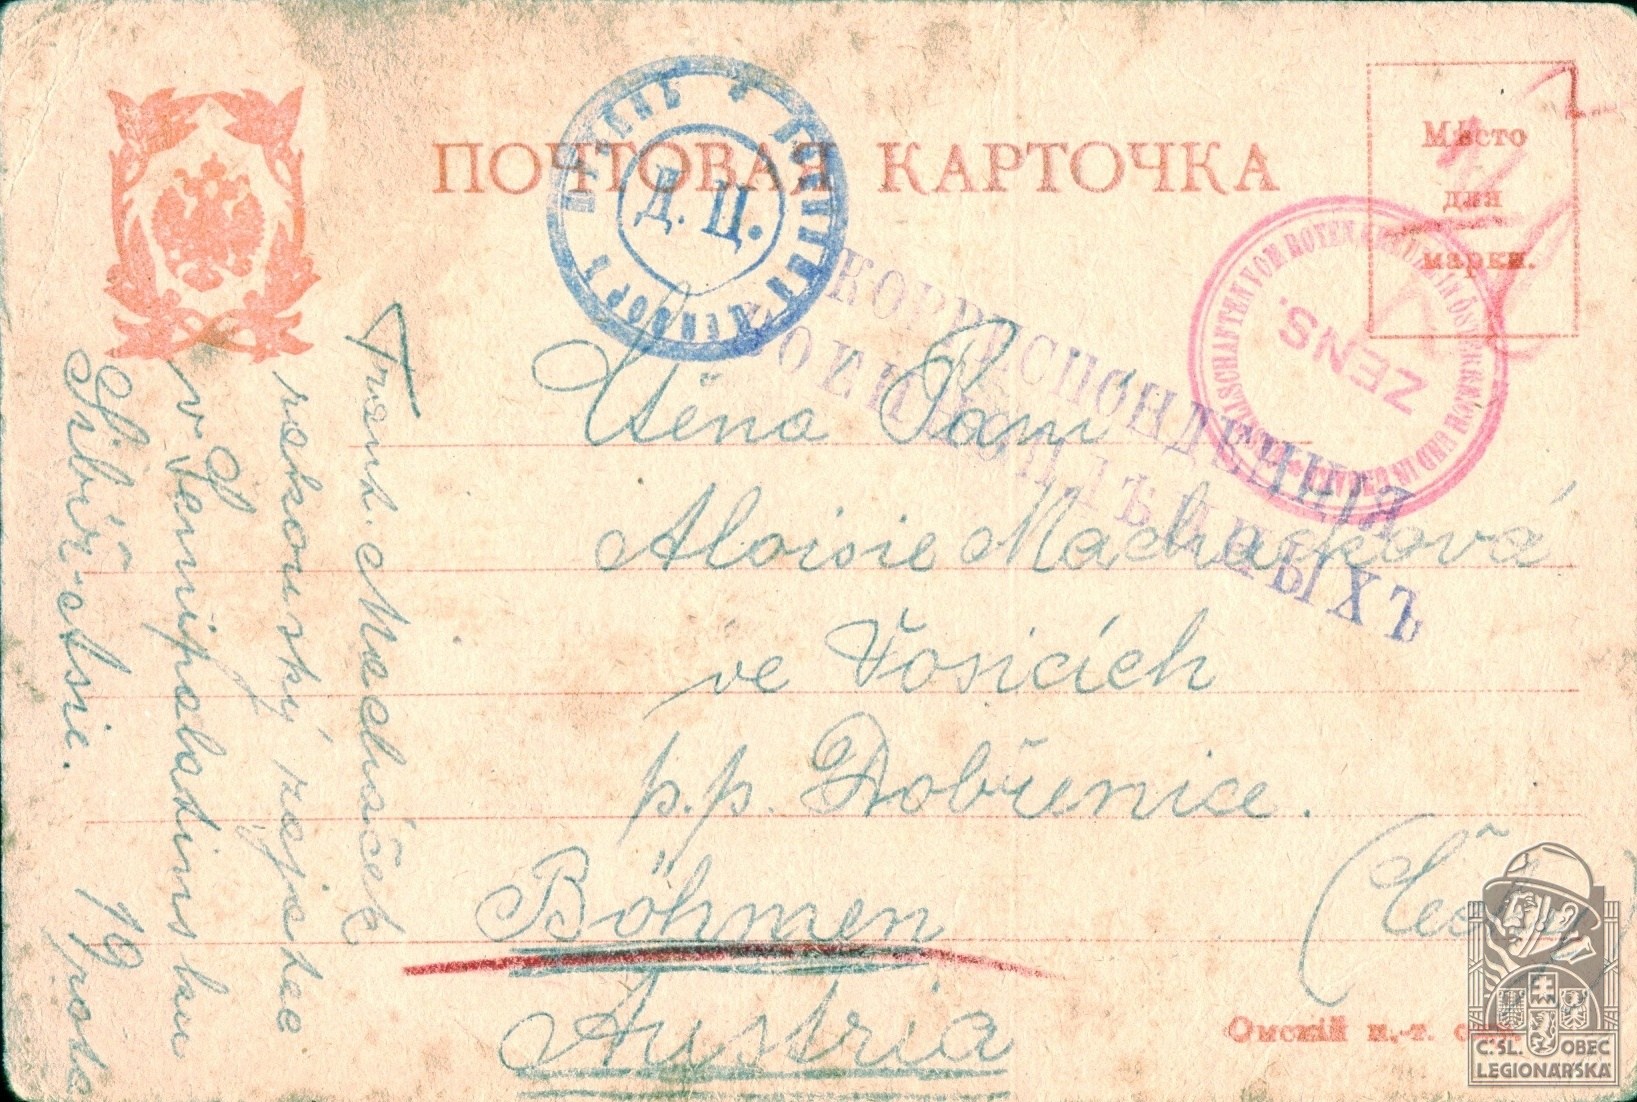 ПОЧТОВАЯ КАРТОЧКА
Мѣсто
для
марки.
Д. Ц.
КОРРЕСПОНДЕНЦІЯ
ВОЕННОПЛѢННЫХЪ
ZENS.
Ctěná Paní
Aloisie Macháčková
ve Vosicích
p. p. Dobřenice.
Böhmen
Austria
Frant. Macháček
rakouský zajatec
v Semipalatinsku
Sibiř-Asie.
19 rota
Омскій п.-т.
Č:SL. OBEC
LEGIONÁŘSKÁ